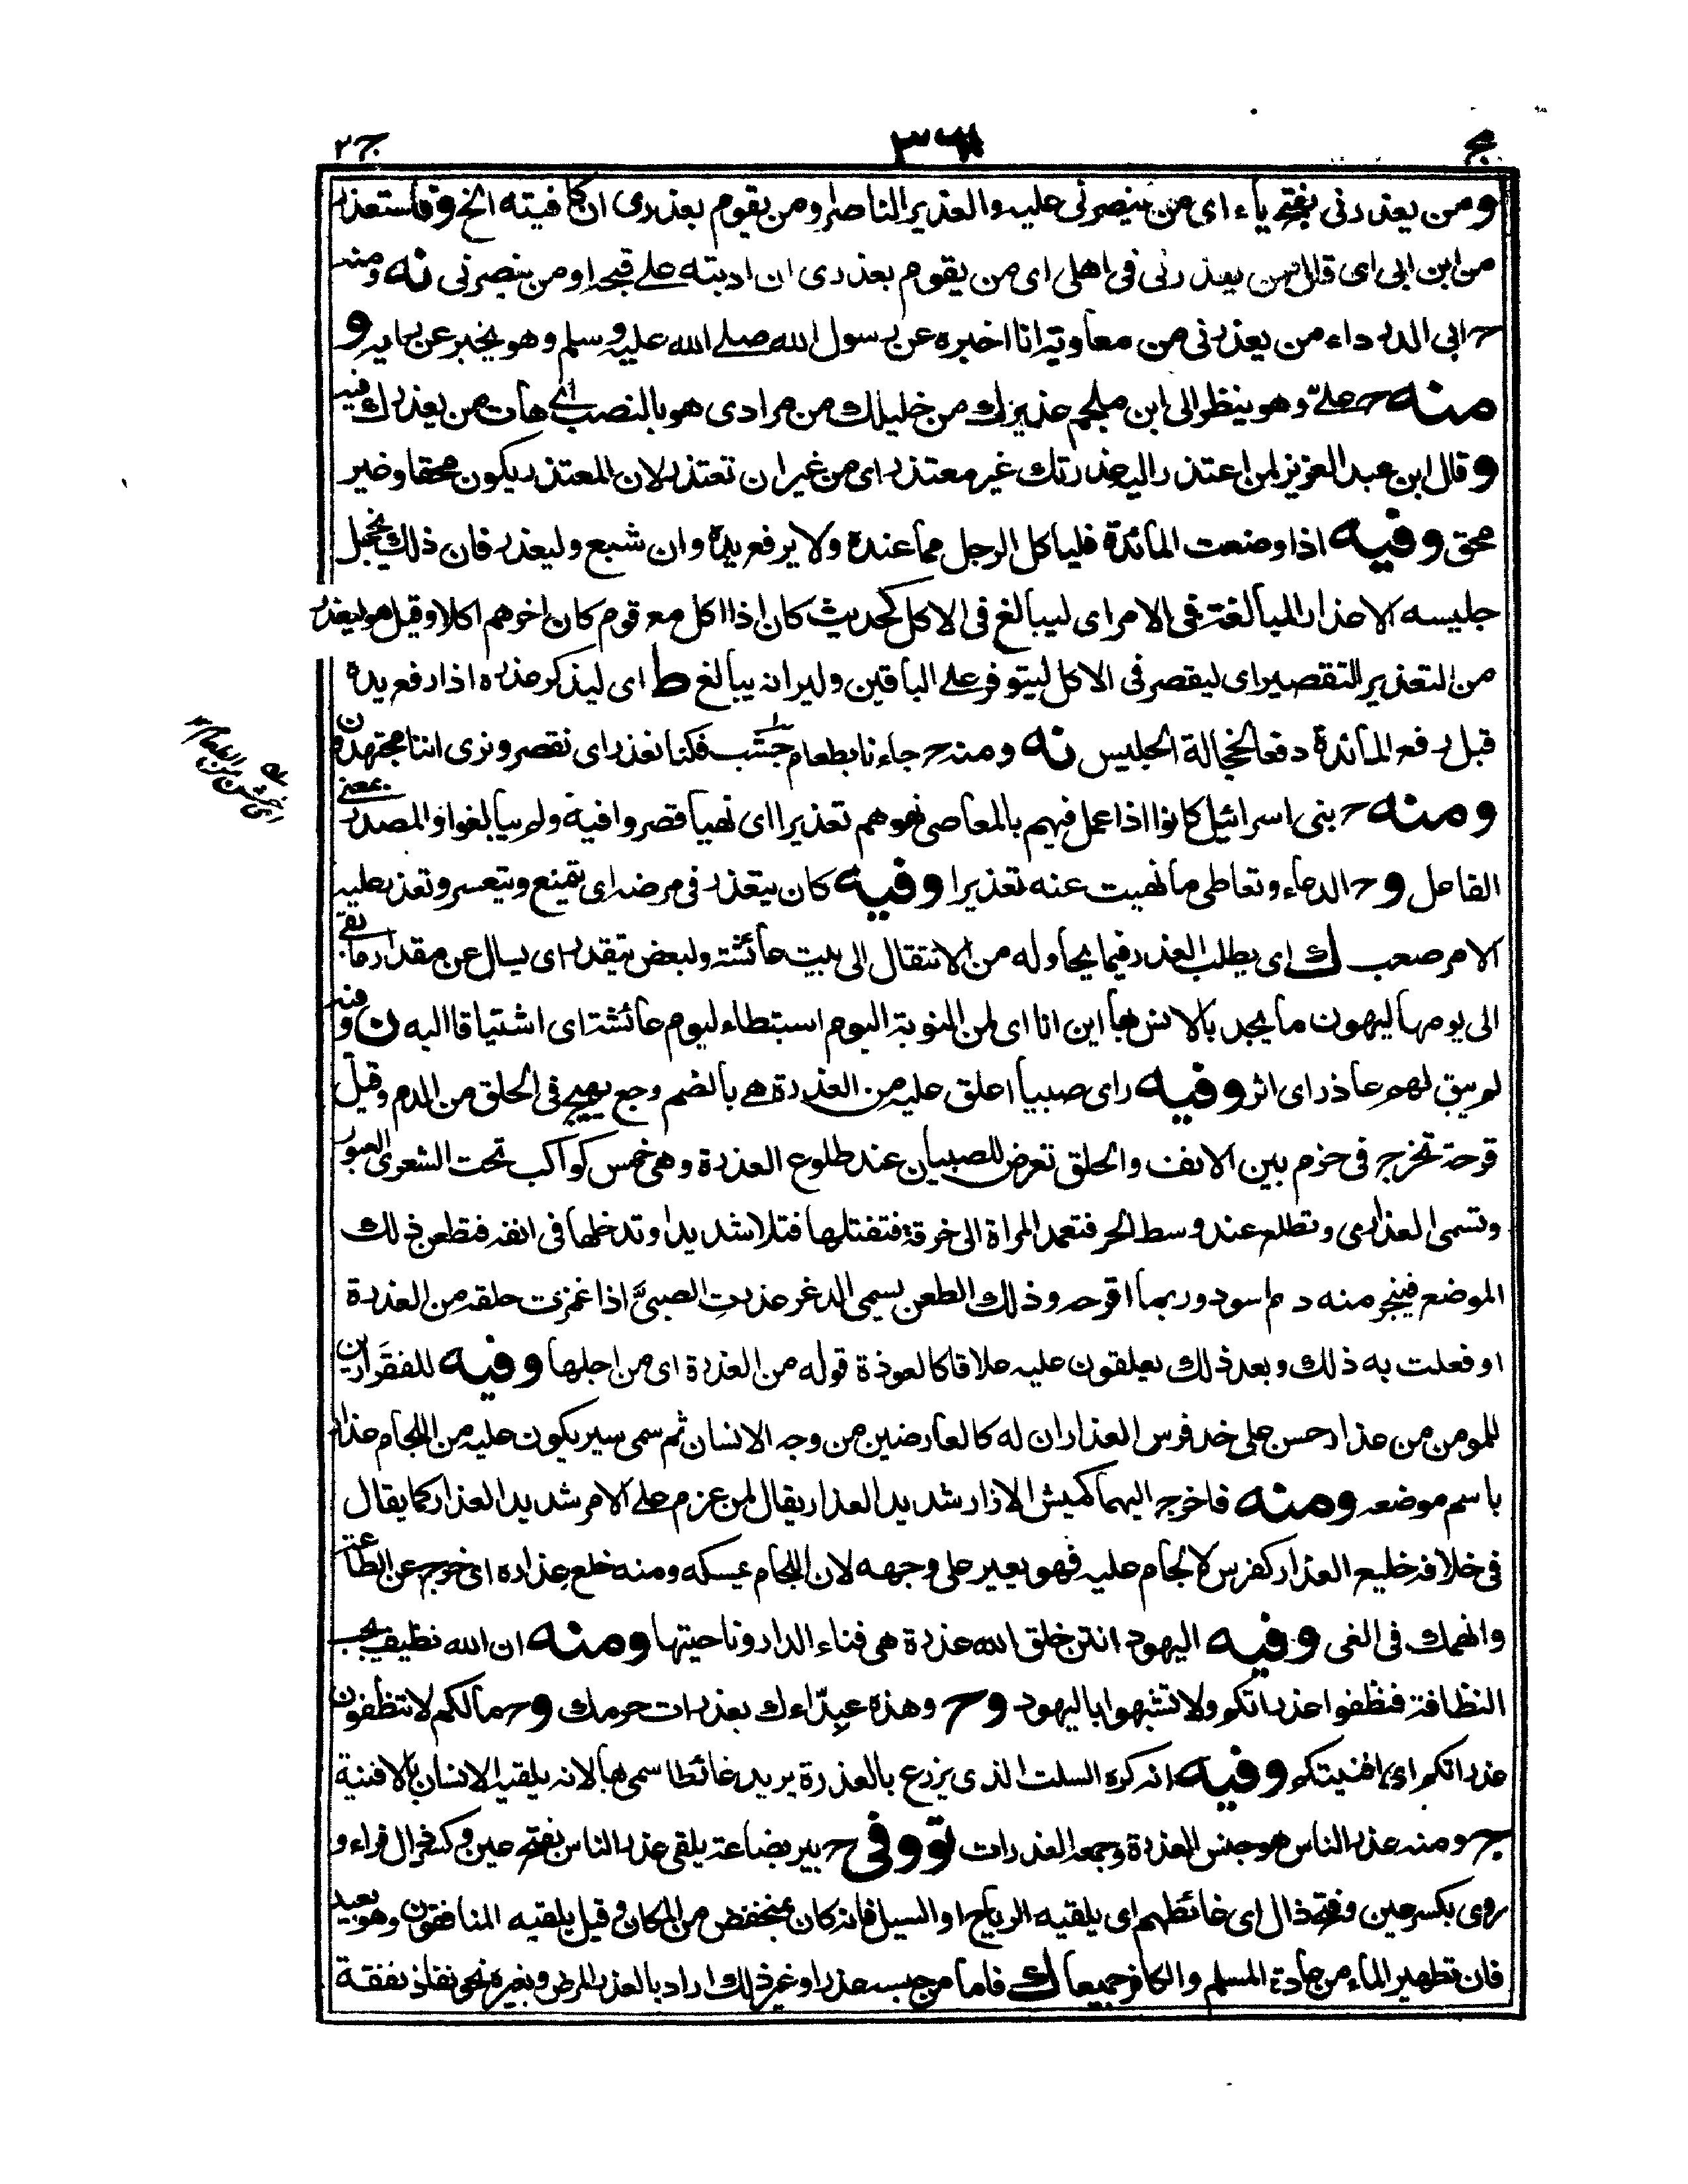 ج ٣٦٨ ج٢
ومن يعذرنى بفتح ياء اى من ينصرنى عليه والعذير الناصر او من يقوم بعذرى ان كافيته الخ وفاستعذر
من ابن ابى اى قال من يعذرنى فى اهلى اى من يقوم بعذرى ان ادبته على قبحه او من ينصرنى نه ومنه
ح ابى الدرداء من يعذرنى من معاوية انا اخبره عن رسول الله صلے الله عليه وسلم وهو يخبر عن رايه و
منه ح علىّ وهو ينظر الى ابن ملجم عذيرك من خليلك من مراد ى هو بالنصب اى هات من يعذرك فيه
وقال ابن عبد العزيز لمن اعتذر اليه عذرتك غير معتذر اى من غير ان تعتذر لان المعتذر يكون محقا وغير
محق وفيه اذا وضعت المائدة فلياكل الرجل مما عنده ولا يرفع يده وان شبع وليعذر فان ذلك يخجل
جليسه الاعذار المبالغة فى الامر اى ليبالغ فى الاكل كحديث كان اذا اكل مع قوم كان اخرهم اكلا وقيل هو ليعذر
من التعذير التقصير اى ليقصر فى الاكل ليتوفر على الباقين ولير انه يبالغ ط اى ليذكر عذره اذا رفع يده
قبل رفع المائدة دفعا لخجالة الجليس نه ومنه ح جاءنا بطعام جشب فكنا نعذر اى نقصر ونرى اننا مجتهدون
ومنه ح بنى اسرائيل كانوا اذا عمل فيهم بالمعاصى نهوهم تعذيرا اى نهيا قصروا فيه ولم يبالغوا والمصدر بمعنى
الفاعل وح الدعاء وتعاطى ما نهيت عنه تعذيرا وفيه كان يتعذر فى مرضه اى يتمنع ويتعسر وتعذر عليه
الامر صعب ك اى يطلب العذر فيما يحاوله من الانتقال الى بيت عائشة ولبعض يتقدر اى يسال عن مقدار ما بقى
الى يومها ليهون ما يجد بالانس بها اين انا اى لمن النوبة اليوم استبطاء ليوم عائشة اى اشتياقا اليه ن وفيه
لم يبق لهم عاذر اى اثر وفيه راى صبيا اعلق عليه من العذرة هے بالضم وجع يهيج فى الحلق من الدم وقيل
قرحة تخرج فى خزم بين الانف والحلق تعرض للصبيان عند طلوع العذرة وهى خمس كواكب تحت الشعرى العبور
وتسمى العذارى وتطلع عند وسط الحر فتعمد المراة الى خرقة فتفتلها فتلا شديدا وتدخلها فى انفه فتطعن ذلك
الموضع فينجر منه دم اسود وربما اقرحه وذلك الطعن يسمى الدغر عذرتِ الصبىَّ اذا غمزت حلقه من العذرة
او فعلت به ذلك وبعد ذلك يعلقون عليه علاقا كالعوذة قوله من العذرة اى من اجلها وفيه للفقر ازين
للمومن من عذار حسن على خد فرس العذاران له كالعارضين من وجه الانسان ثم سمى سير يكون عليه من اللجام عذارا
باسم موضعه ومنه فاخرج اليهما كميش الازار شديد العذار يقال لمن عزم على الامر شديد العذار كما يقال
فى خلافه خليع العذار كفرس لا لجام عليه فهو يعير على وجهه لان اللجام يمسكه ومنه خلع عذاره اى خرج عن الطاعة
وانهمك فى الغى وفيه اليهود انتن خلق الله عذرة هى فناء الدار وناحيتها ومنه ان الله نظيف يحب
النظافة فنظفوا عذراتكم ولا تشبهوا باليهود وح وهذه عِبِدّاءك بعذرات حرمك وح مالكم لا تنظفون
عذراتكم اى افنيتكم وفيه انه كره السلت الذى يزرع بالعذرة يريد غائطا سمى بها لانه يلقيه الانسان بالافنية
ج ومنه عذر الناس هو جنس العذرة وجمعه العذرات تو وفى ح بير بضاعة يلقى عذر الناس بفتح عين وكسر ذال فراء و
روى بكسر عين وفتح ذال اى غائطهم اى يلقيه الرياح او السيل فانه كان بمنخفض من المكان وقيل يلقيه المنافقون وهو بعيد
فان تطهير الماء من عادة المسلم والكافر جميعا ك فاما من حبسه عذر او غير ذلك اراد بالعذر المرض وبغيره نحو نفاذ نفقة